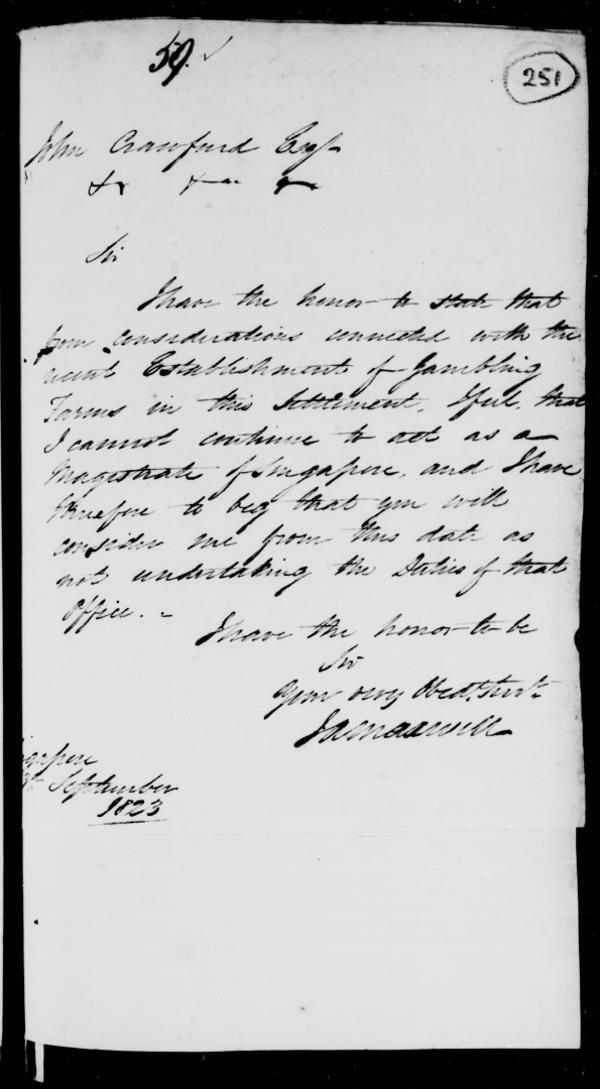 59.
251
John Crawfurd Esqr
&c &c &c
Sir
I have the honor to state that
from considerations connected with the
recent Establishment of Gambling
Farms in this Settlement, I feel that
I cannot continue to act as a
Magistrate of Singapore, and I have
therefore to beg that you will
consider me from this date as
not undertaking the Duties of that
Office. -
I have the honor to be
Sir
Your very Obedt. Servt.
gapore
September
1823